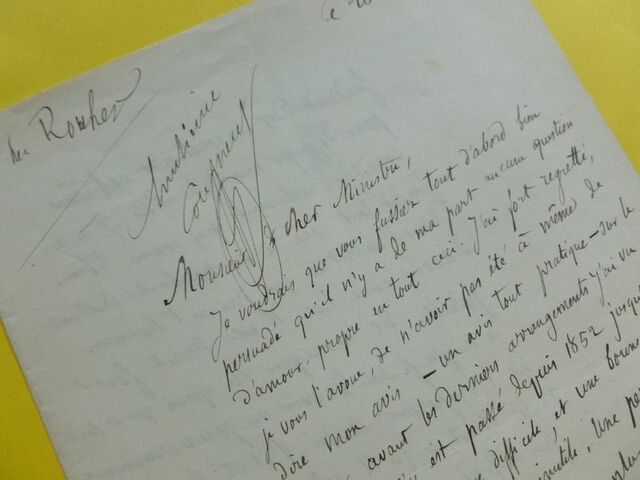 Rouher
Monsieur & cher Ministre,
Je voudrais que vous fussiez tout d'abord bien
persuadé qu'il n'y a de ma part aucune question
d'amour-propre en tout ceci. J'ai fort regretté,
je vous l'avoue, de n'avoir pas été à même de
dire mon avis – un avis tout pratique – sur le
avant les derniers arrangements. J'ai vu
est passé depuis 1852 jusqu'
difficile, et une bonne
inutile, une
plus